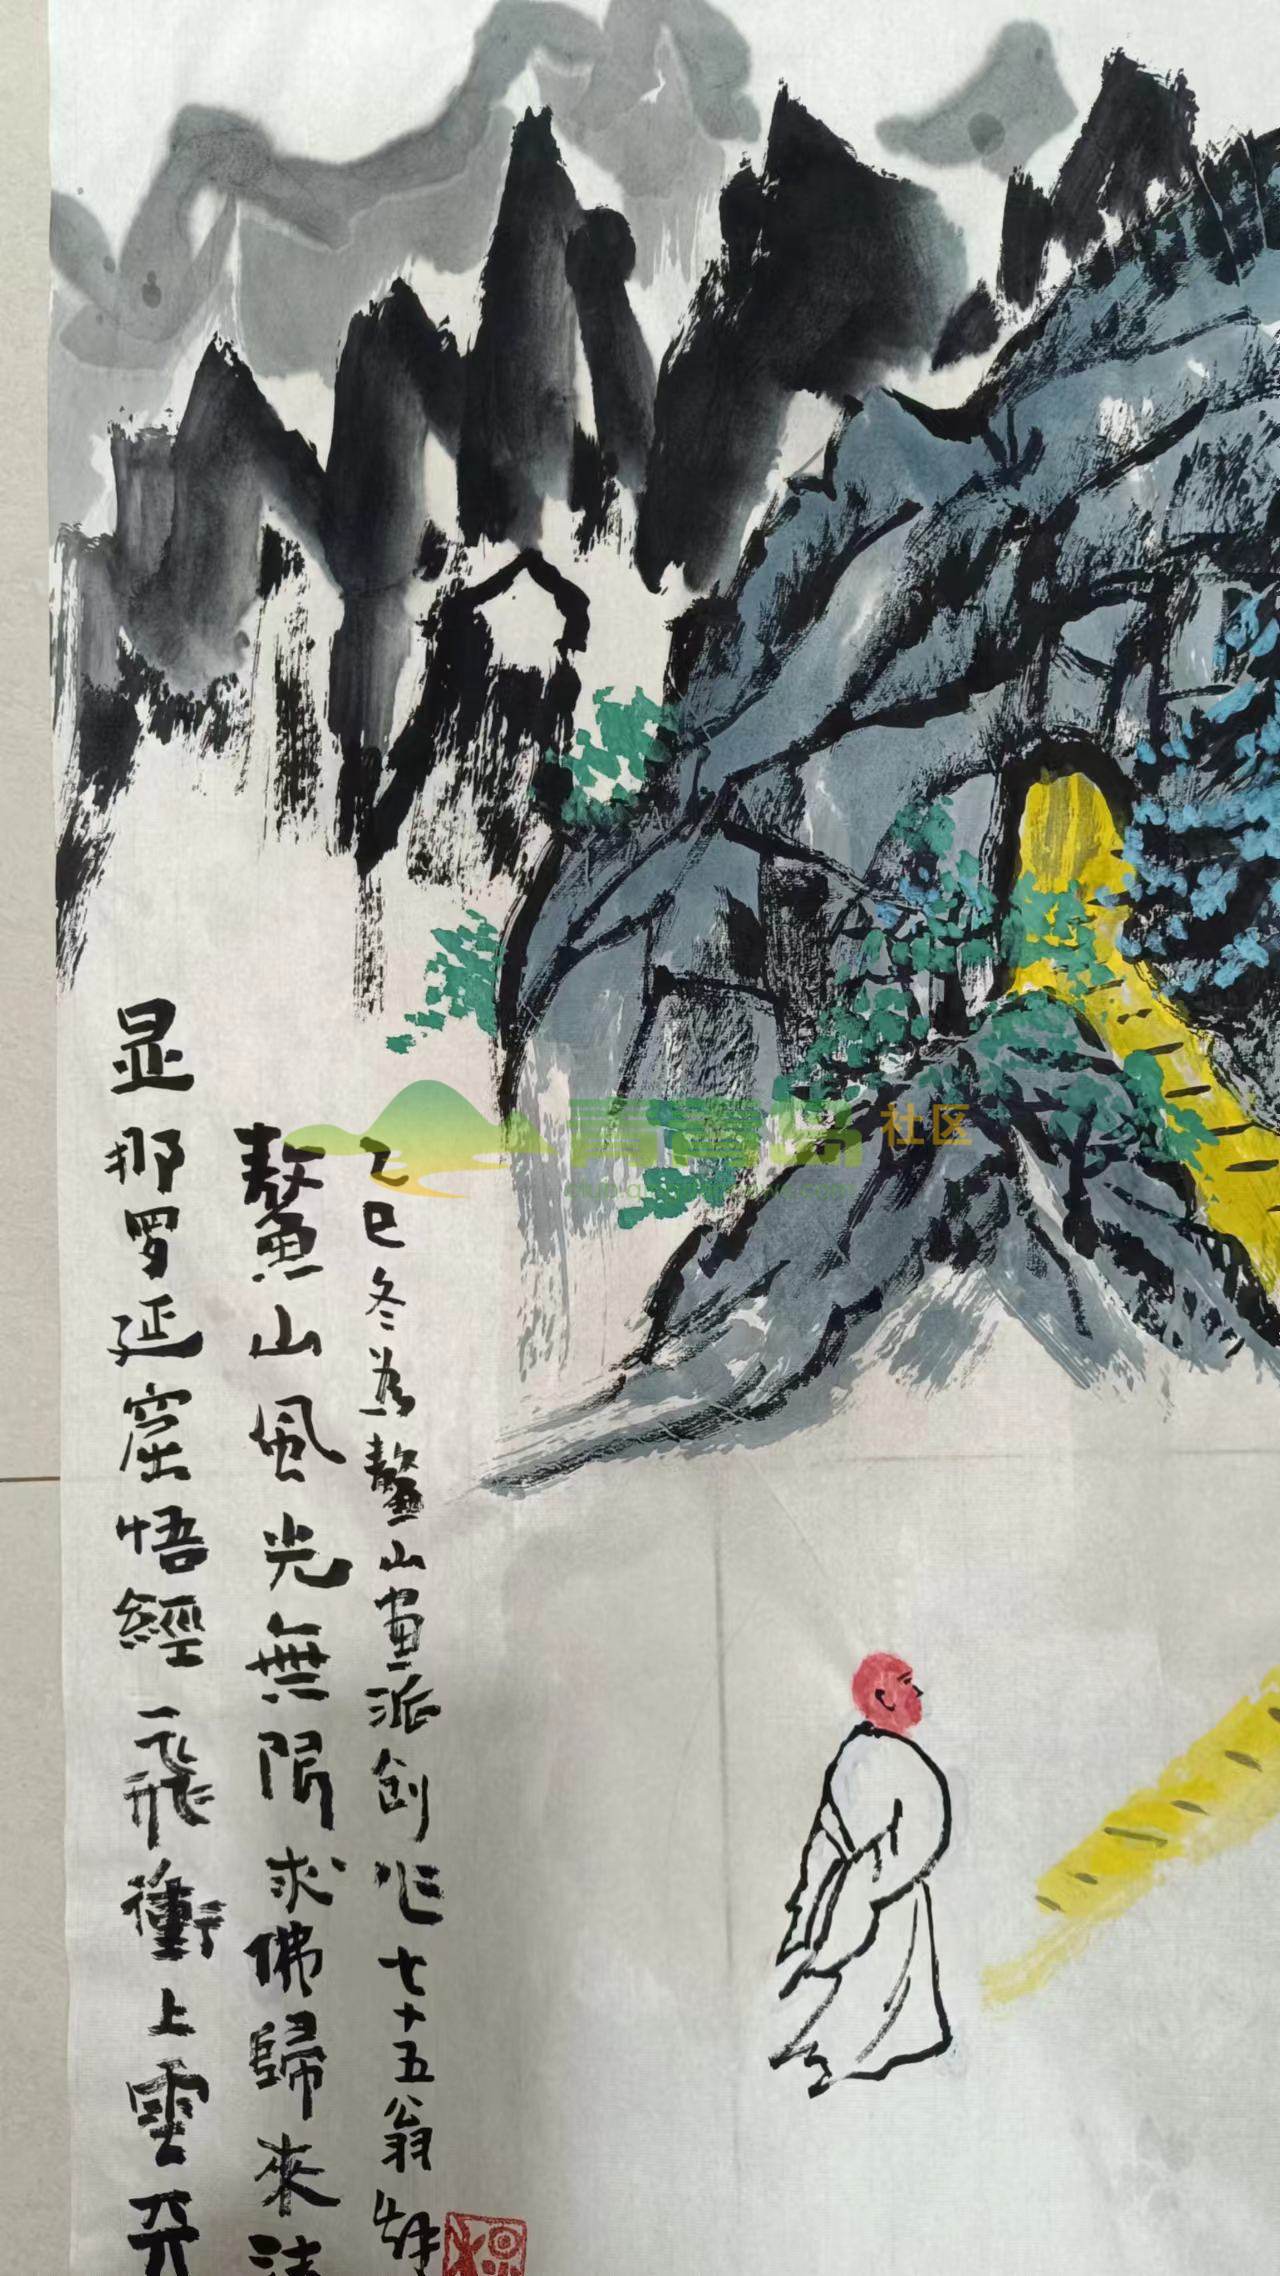 乙巳冬為鰲山画派创作七十五翁
鰲山風光無限求佛歸來法
显那罗延窟悟經一飛衝上雲
青青岛社区
club.qingdaonews.com